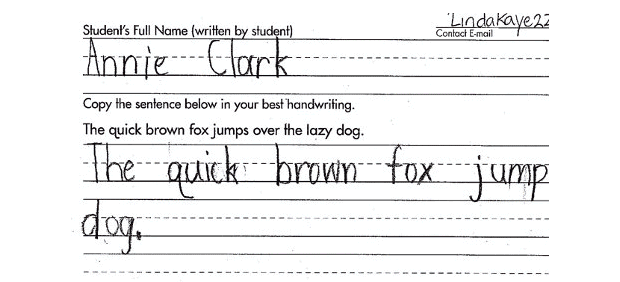 Student's Full Name (written by student)
LindaKaye22
Contact E-mail
Annie Clark
Copy the sentence below in your best handwriting.
The quick brown fox jumps over the lazy dog.
The quick brown fox jump
dog.